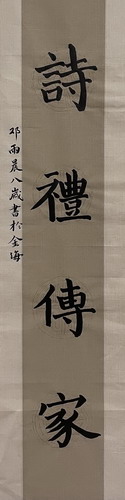 詩禮傳家
邓雨晨八歲書於金海